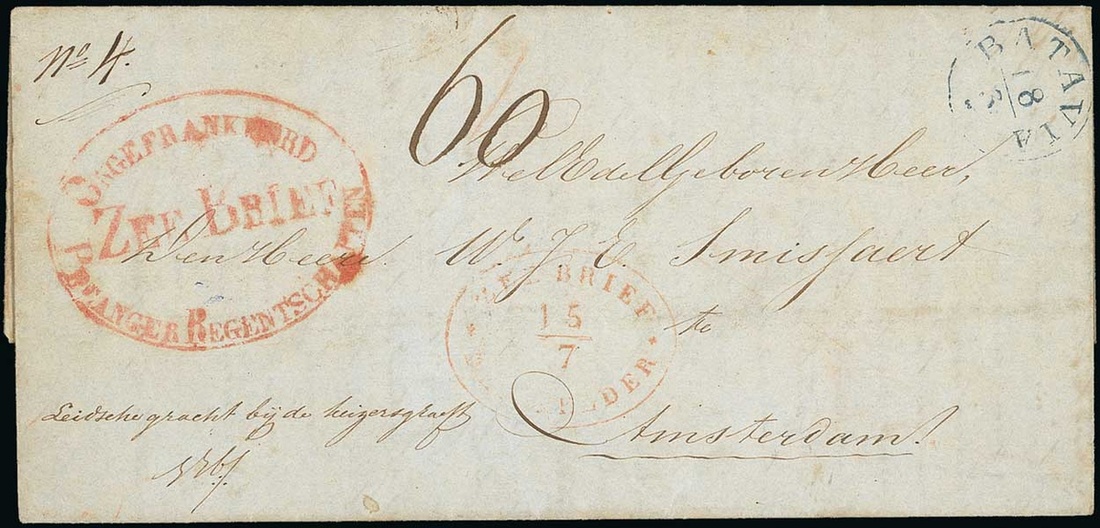 No 4.
60
BATAVIA
18
ONGEFRANKEERD
ZEE BRIEF
PREANGER REGENTSCHAPPEN
WelEdelGeboren Heer,
Den Heer W. J. E. Smissaert
ZEE BRIEF
15
7
HELDER
te
Amsterdam.
Leidsche gracht bij de keizersgracft